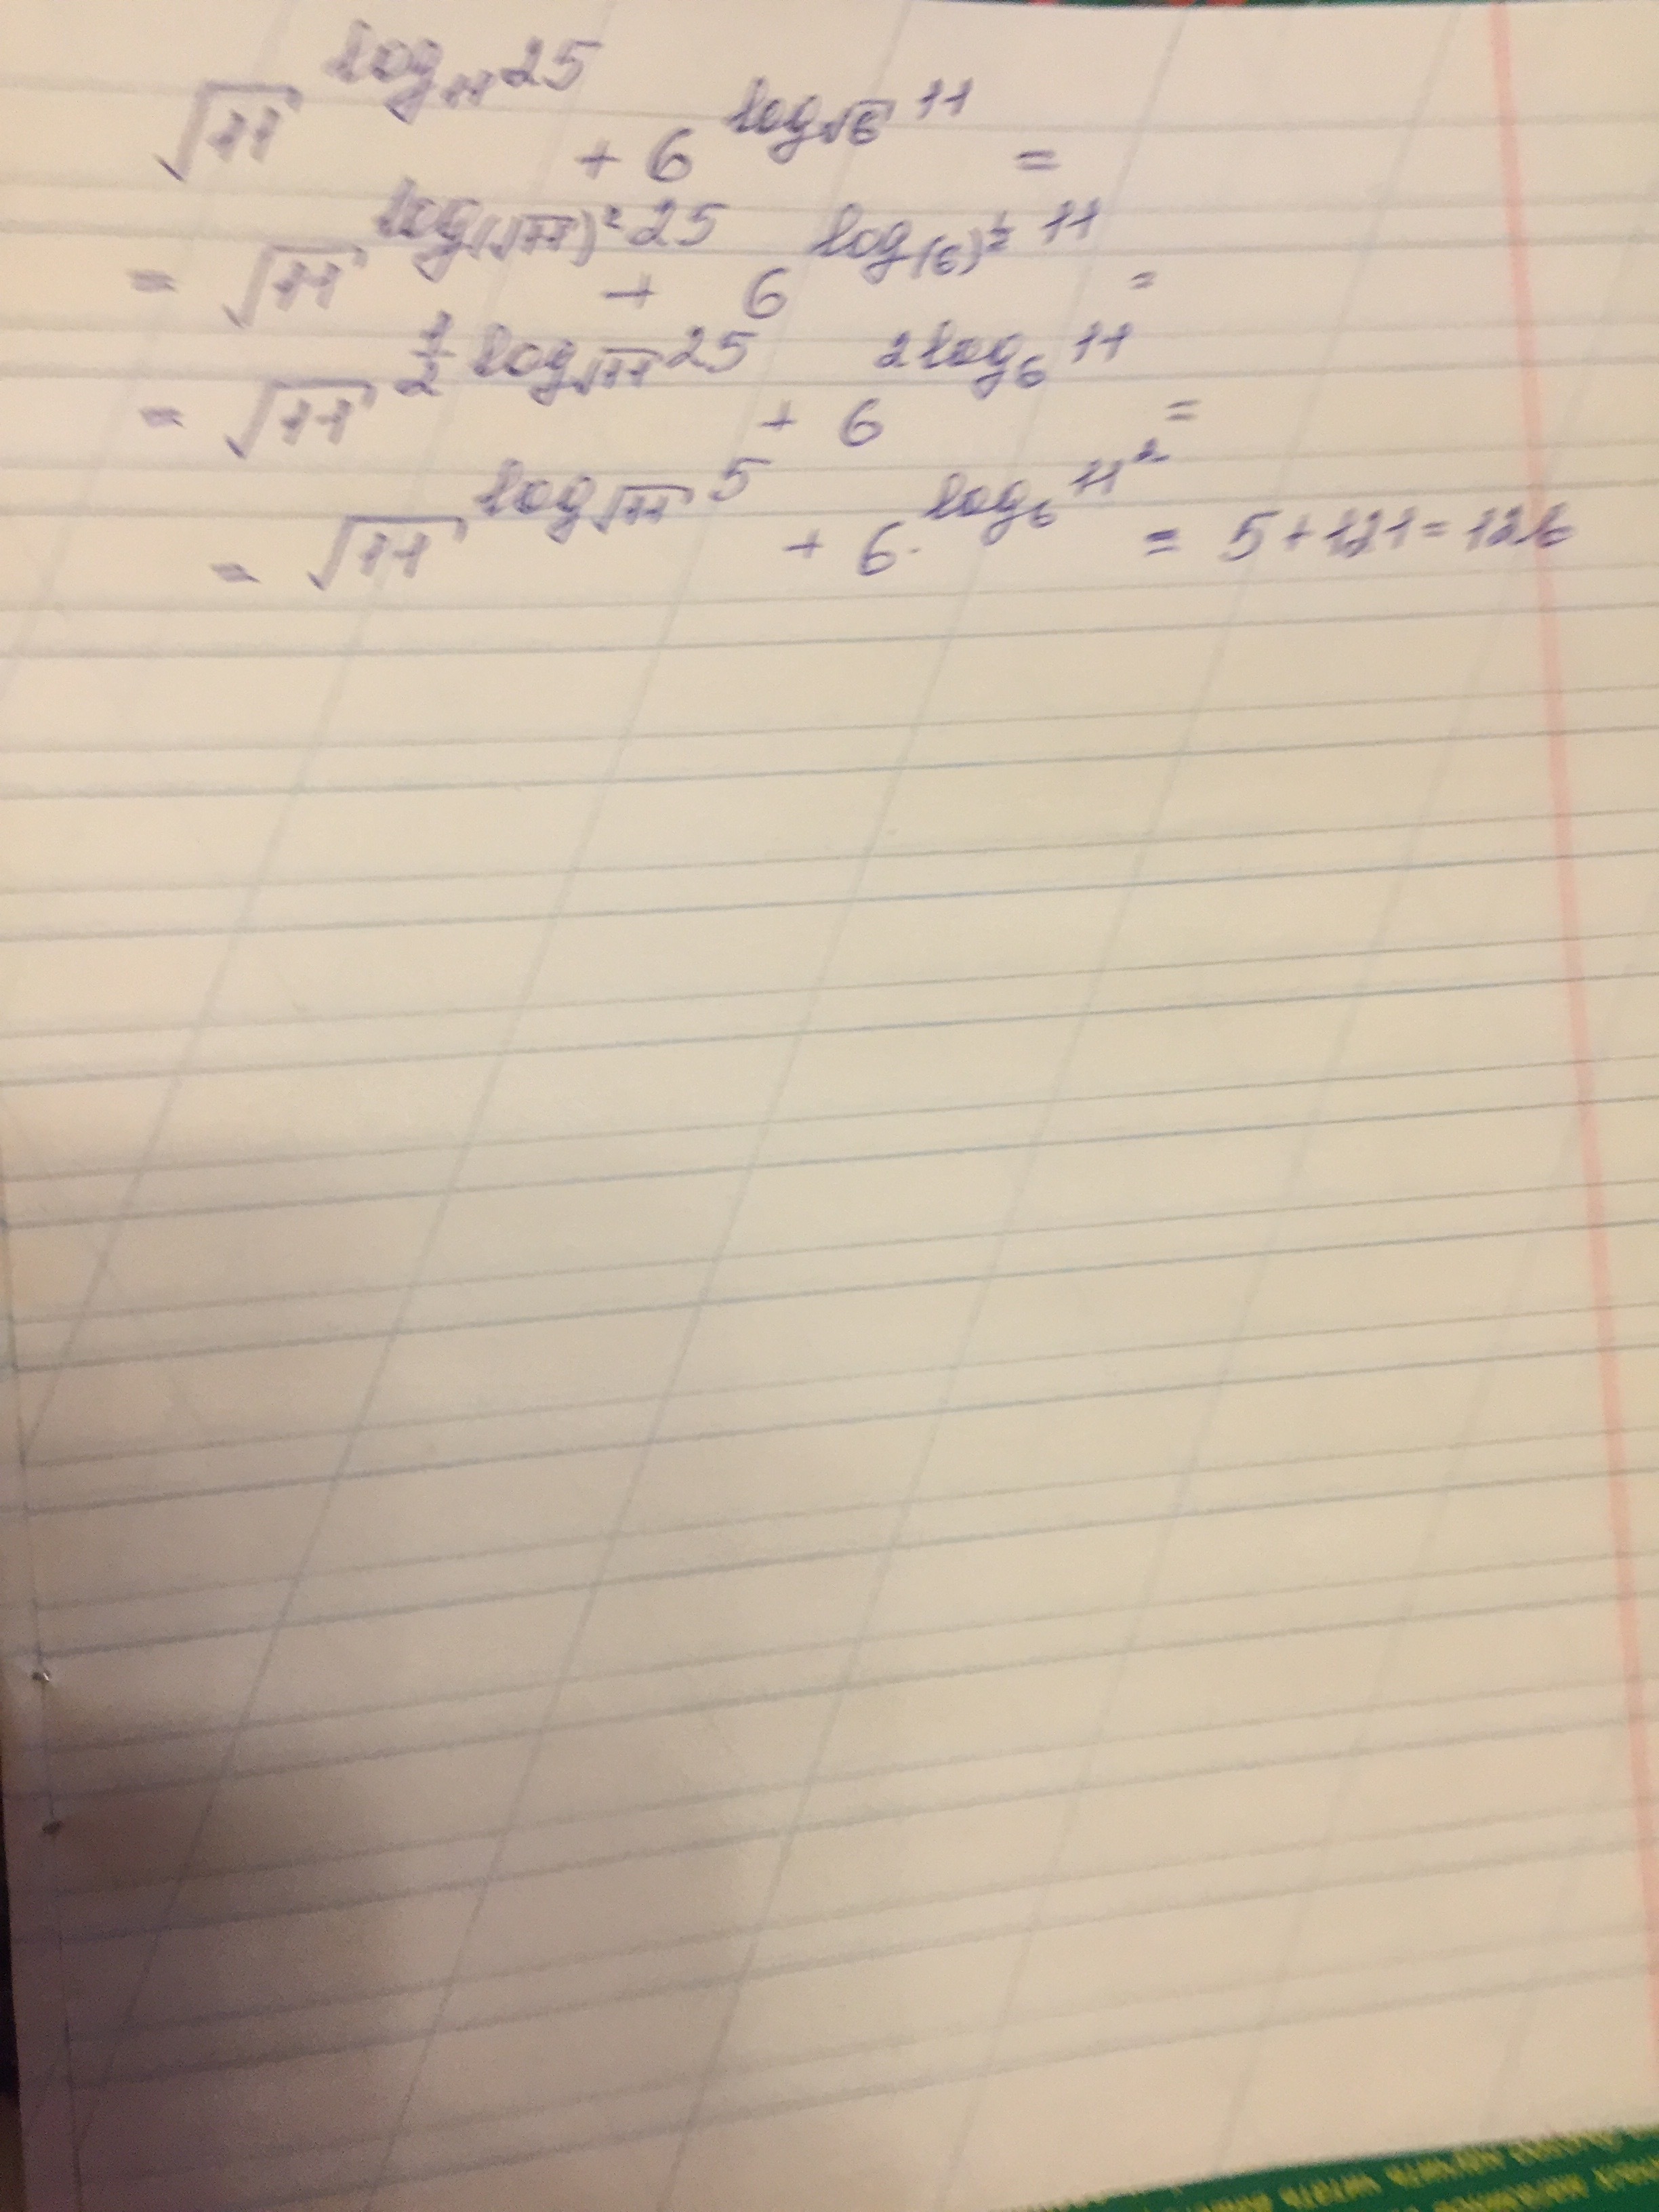 √11^(log₁₁ 25) + 6^(log_√6 11) =
= √11^(log_(√11)² 25) + 6^(log_(6)^½ 11) =
= √11^(½ log_√11 25) + 6^(2 log₆ 11) =
= √11^(log_√11 5) + 6^(log₆ 11²) = 5 + 121 = 126